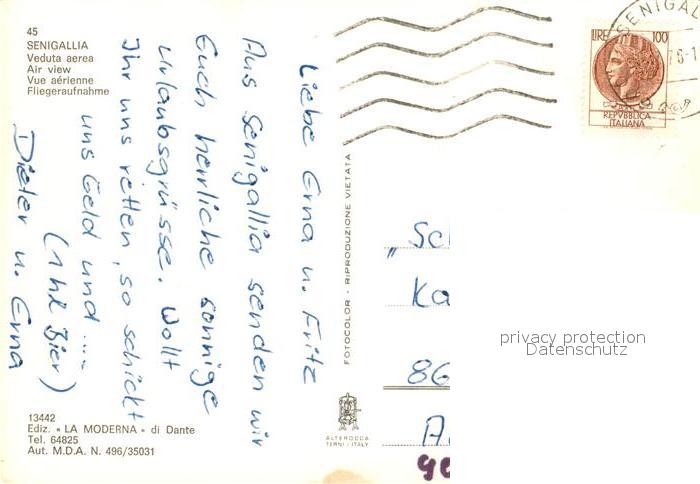 45
SENIGALLIA
Veduta aerea
Air view
Vue aérienne
Fliegeraufnahme
Liebe Erna u. Fritz
Aus Senigallia senden wir
Euch herrliche sonnige
Urlaubsgrüsse. Wollt
Ihr uns retten, so schickt
uns Geld und .....
(1 hl Bier)
Dieter u. Erna
13442
Ediz. « LA MODERNA » di Dante
Tel. 64825
Aut. M.D.A. N. 496/35031
FOTOCOLOR - RIPRODUZIONE VIETATA
ALTEROCCA
TERNI - ITALY
SENIGAL
LIRE 100
REPVBBLICA
ITALIANA
„Sc
Ka
86
A
privacy protection
Datenschutz